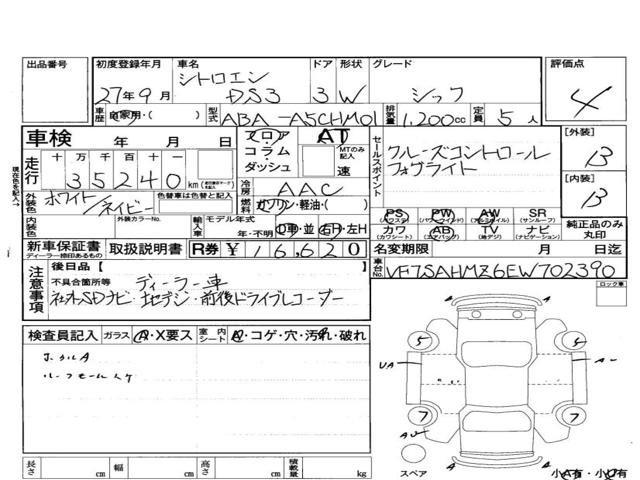 出品番号 初度登録年月 車名 ドア 形状 グレード 評価点
27年9月 シトロエン DS3 3 W シック 4
車歴 自家用・( ) 型式 ABA-A5CHM01 排気量 1,200cc 定員 5人
車検 年 月 日 フロア コラム ダッシュ AT MTのみ記入 速
セールスポイント クルーズコントロール フォグライト
[外装] B
[内装] B
現在色を記入→
走行 十 万 千 百 十 一
35240km
冷房 AAC
外装色 ホワイト/ネイビー 色替車は色替と記入 燃料 ガソリン・軽油・( )
内装色 外装カラーNo. 輸入車 モデル年式 年・不明 D車・並 右H・左H
PS (パワステ) PW (パワーウインド) AW (アルミホイル) SR (サンルーフ)
カワ (カワシート) AB (エアバック) TV (地デジ) ナビ (ナビゲーション)
純正品のみ丸印
新車保証書 ディーラー捺印あるもの 取扱説明書 R券 ¥16,620
名変期限 月 日迄
車台No. VF7SAHMZ6EW702390
注意事項 後日品[ ]
不具合箇所等 ディーラー車
社外SDナビ・地デジ・前後ドライブレコーダー
ロック車
検査員記入 ガラス A・X要ス 室内シート A・コゲ・穴・汚れ・破れ
ルーフモール
5 5
UA A
7 7
スペア 小A有・小U有
長さ cm 幅 cm 高さ cm 積載量 kg